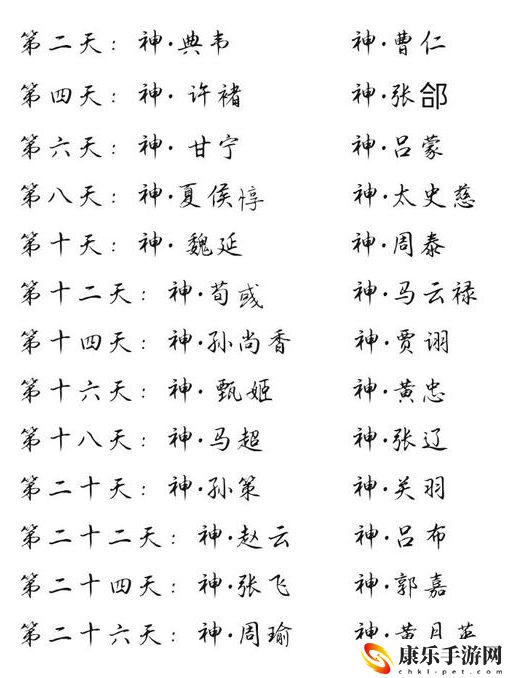 第二天：神·典韦 神·曹仁
第四天：神·许褚 神·张郃
第六天：神·甘宁 神·吕蒙
第八天：神·夏侯惇 神·太史慈
第十天：神·魏延 神·周泰
第十二天：神·荀彧 神·马云禄
第十四天：神·孙尚香 神·贾诩
第十六天：神·甄姬 神·黄忠
第十八天：神·马超 神·张辽
第二十天：神·孙策 神·关羽
第二十二天：神·赵云 神·吕布
第二十四天：神·张飞 神·郭嘉
第二十六天：神·周瑜 神·黄月英
康乐手游网
chkl-pet.com